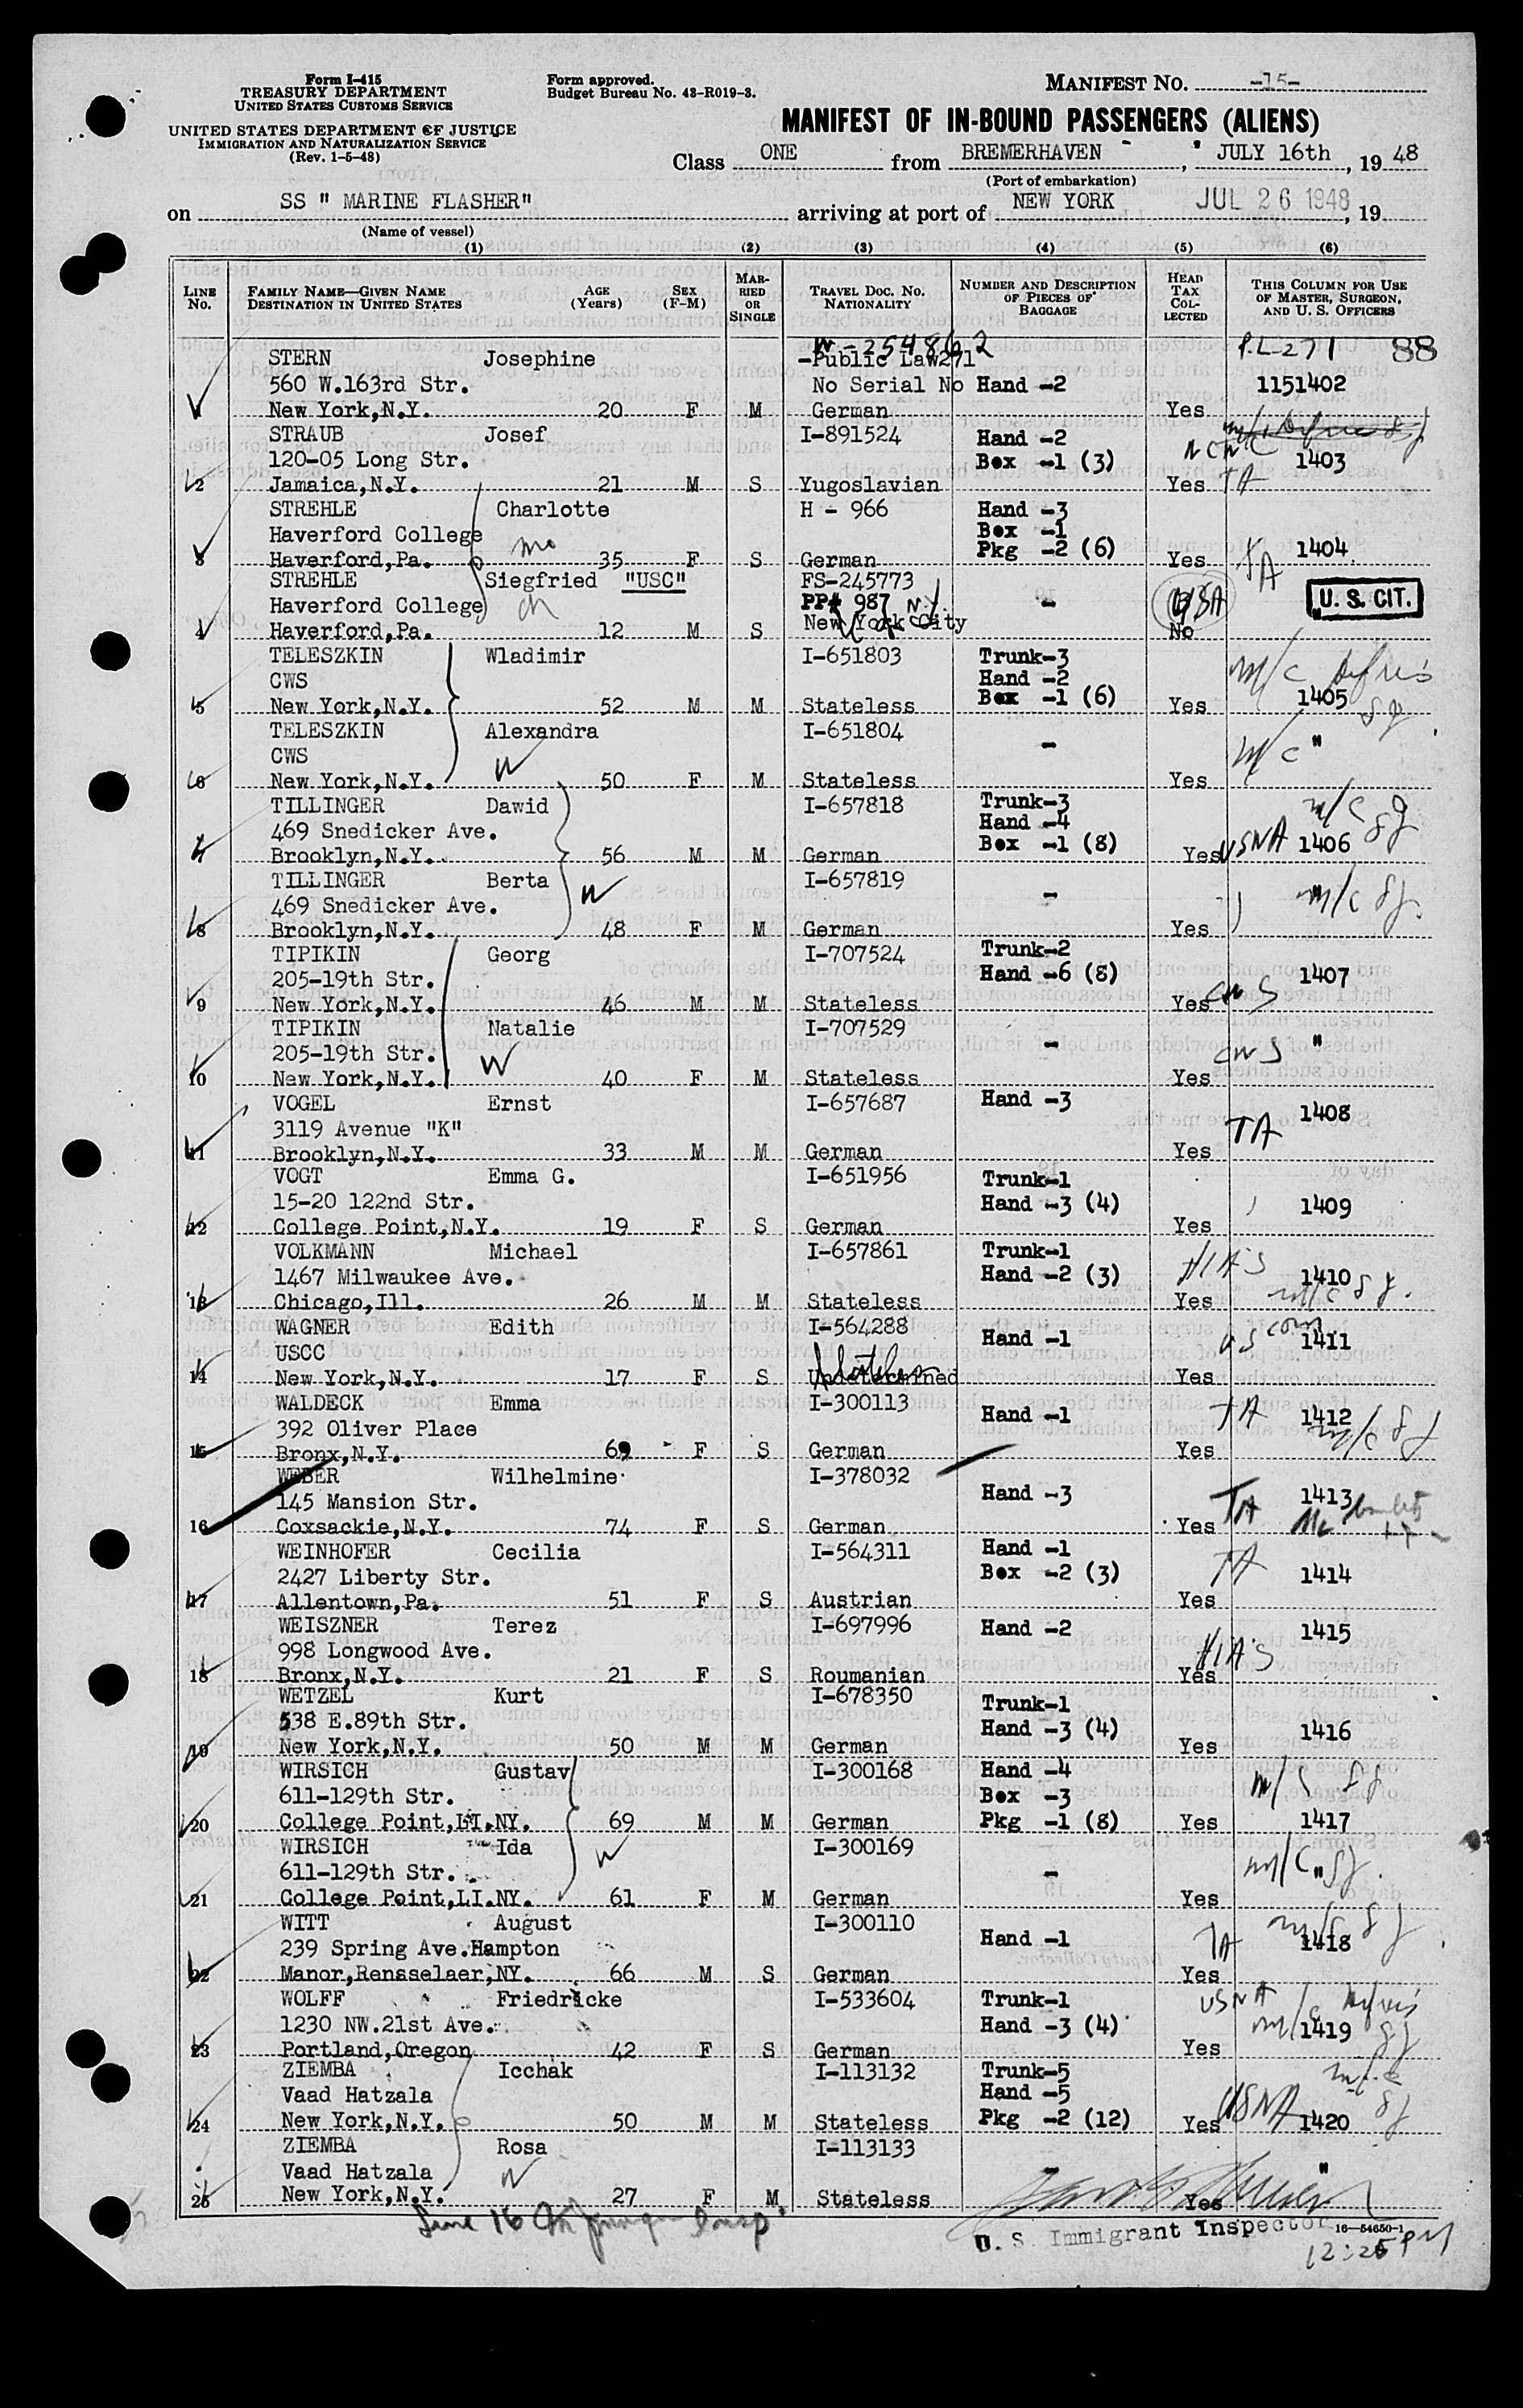 Form I-415
TREASURY DEPARTMENT
UNITED STATES CUSTOMS SERVICE
UNITED STATES DEPARTMENT OF JUSTICE
IMMIGRATION AND NATURALIZATION SERVICE
(Rev. 1-5-48)
Form approved.
Budget Bureau No. 43-R019-3.
MANIFEST NO. -15-
MANIFEST OF IN-BOUND PASSENGERS (ALIENS)
Class ONE from BREMERHAVEN, JULY 16th, 19 48
(Port of embarkation)
on SS " MARINE FLASHER" arriving at port of NEW YORK JUL 26 1948, 19
(Name of vessel)
(1) (2) (3) (4) (5) (6)
LINE NO. FAMILY NAME—GIVEN NAME DESTINATION IN UNITED STATES AGE (Years) SEX (F-M) MARRIED OR SINGLE TRAVEL DOC. NO. NATIONALITY NUMBER AND DESCRIPTION OF PIECES OF BAGGAGE HEAD TAX COLLECTED THIS COLUMN FOR USE OF MASTER, SURGEON, AND U. S. OFFICERS
W-254862 P.L-271 88
STERN Josephine -Public Law271
560 W.163rd Str. No Serial No Hand -2 1151402
New York,N.Y. 20 F M German Yes
STRAUB Josef I-891524 Hand -2
120-05 Long Str. Box -1 (3) 1403
2 Jamaica,N.Y. 21 M S Yugoslavian Yes TA
STREHLE Charlotte H - 966 Hand -3
Haverford College Box -1
3 Haverford,Pa. 35 F S German Pkg -2 (6) Yes 1404 TA
STREHLE Siegfried "USC" FS-245773
Haverford College PP# 987 N.Y. - USA U. S. CIT.
4 Haverford,Pa. 12 M S New York City No
TELESZKIN Wladimir I-651803 Trunk-3 m/c
CWS Hand -2
5 New York,N.Y. 52 M M Stateless Box -1 (6) Yes 1405
TELESZKIN Alexandra I-651804
CWS W - m/c "
6 New York,N.Y. 50 F M Stateless Yes
TILLINGER Dawid I-657818 Trunk-3 m/c
469 Snedicker Ave. Hand -4
Brooklyn,N.Y. 56 M M German Box -1 (8) Yes USNA 1406
TILLINGER Berta I-657819
469 Snedicker Ave. W - " m/c
8 Brooklyn,N.Y. 48 F M German Yes
TIPIKIN Georg I-707524 Trunk-2
205-19th Str. Hand -6 (8) 1407
9 New York,N.Y. 46 M M Stateless Yes CWS
TIPIKIN Natalie I-707529
205-19th Str. W - CWS "
10 New York,N.Y. 40 F M Stateless Yes
VOGEL Ernst I-657687 Hand -3 1408
3119 Avenue "K" TA
11 Brooklyn,N.Y. 33 M M German Yes
VOGT Emma G. I-651956 Trunk-1
15-20 122nd Str. Hand -3 (4) 1409
12 College Point,N.Y. 19 F S German Yes
VOLKMANN Michael I-657861 Trunk-1
1467 Milwaukee Ave. Hand -2 (3) HIAS 1410
13 Chicago,Ill. 26 M M Stateless Yes m/c
WAGNER Edith I-564288 Hand -1 US com 1411
USCC Stateless
14 New York,N.Y. 17 F S Undetermined Yes
WALDECK Emma I-300113 Hand -1 TA 1412
392 Oliver Place m/c
15 Bronx,N.Y. 69 F S German Yes
WEBER Wilhelmine I-378032
145 Mansion Str. Hand -3 TA 1413
16 Coxsackie,N.Y. 74 F S German Yes
WEINHOFER Cecilia I-564311 Hand -1
2427 Liberty Str. Box -2 (3) TA 1414
17 Allentown,Pa. 51 F S Austrian Yes
WEISZNER Terez I-697996 Hand -2 1415
998 Longwood Ave. HIAS
18 Bronx,N.Y. 21 F S Roumanian Yes
WETZEL Kurt I-678350 Trunk-1
538 E.89th Str. Hand -3 (4) 1416
19 New York,N.Y. 50 M M German Yes
WIRSICH Gustav I-300168 Hand -4
611-129th Str. Box -3
20 College Point,LI.NY. 69 M M German Pkg -1 (8) Yes 1417
WIRSICH Ida I-300169
611-129th Str. W - m/c "
21 College Point,LI.NY. 61 F M German Yes
WITT August I-300110
239 Spring Ave.Hampton Hand -1 TA 1418
22 Manor,Rensselaer,NY. 66 M S German Yes
WOLFF Friedricke I-533604 Trunk-1 USNA
1230 NW.21st Ave. Hand -3 (4) m/c 1419
23 Portland,Oregon 42 F S German Yes
ZIEMBA Icchak I-113132 Trunk-5
Vaad Hatzala Hand -5
24 New York,N.Y. 50 M M Stateless Pkg -2 (12) Yes USNA 1420
ZIEMBA Rosa I-113133
Vaad Hatzala W - "
25 New York,N.Y. 27 F M Stateless Yes
Line 16
U. S. Immigrant Inspector 16—54650-1
12:25 PM